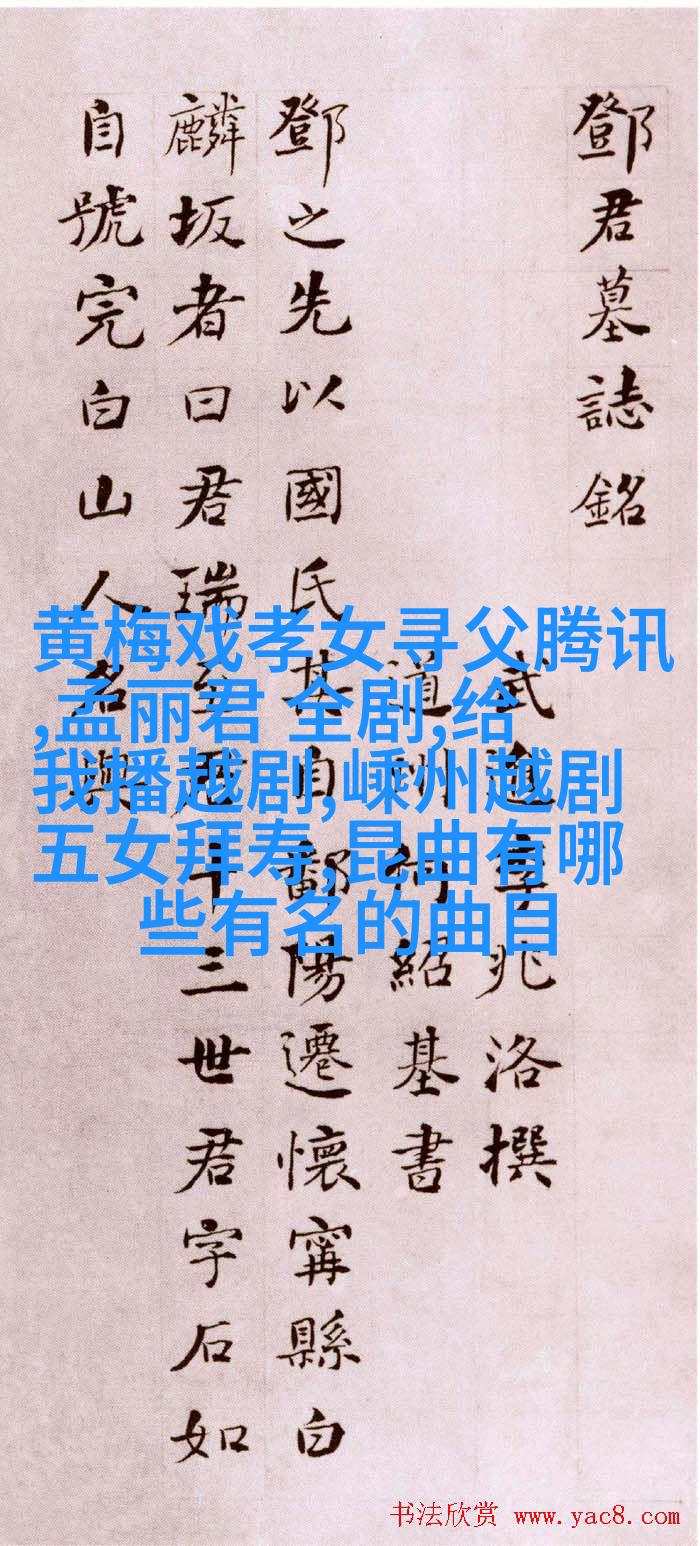 鄧君墓誌銘
武進李兆洛撰
道州何紹基書
鄧之先以國氏其自鄱陽遷懷甯縣白
麟坂者曰君瑞至君十三世君字石如
自號完白山人名與
黄梅戏孝女寻父腾讯
,孟丽君 全剧,给
我播越剧,嵊州越剧
五女拜寿,昆曲有哪
些有名的曲目
书法欣赏 www.yac8.com